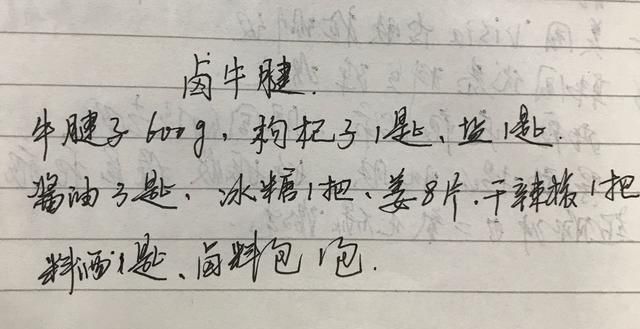 卤牛腱.
牛腱子600g、枸杞子1匙、盐1匙.
酱油3匙、冰糖1把、姜8片、干辣椒1把
料酒1匙、卤料包1包.